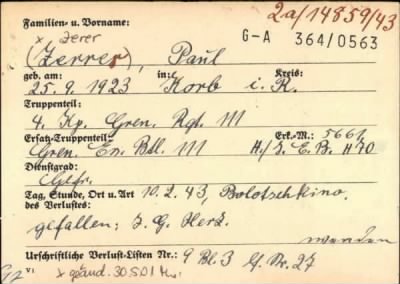 2a/14859/43
Familien- u. Vorname:
x Zerer
G-A 364/0563
(Zerrer), Paul
geb. am: in: Kreis:
25. 9. 1923 Korb i. R.
Truppenteil:
4. Kp. Gren. Rgt. 111
Ersatz-Truppenteil: Erk.-M.: 5661
Gren. Ers. Btl. 111 H/70
Dienstgrad:
Gefr.
Tag, Stunde, Ort u. Art 10. 2. 43, Bolotschkino,
des Verlustes:
gefallen; I. G. Herz.
wenden
Urschriftliche Verlust-Listen Nr.: 9 Bl. 3 lf. Nr. 27
V:
x geänd. 30.5.01